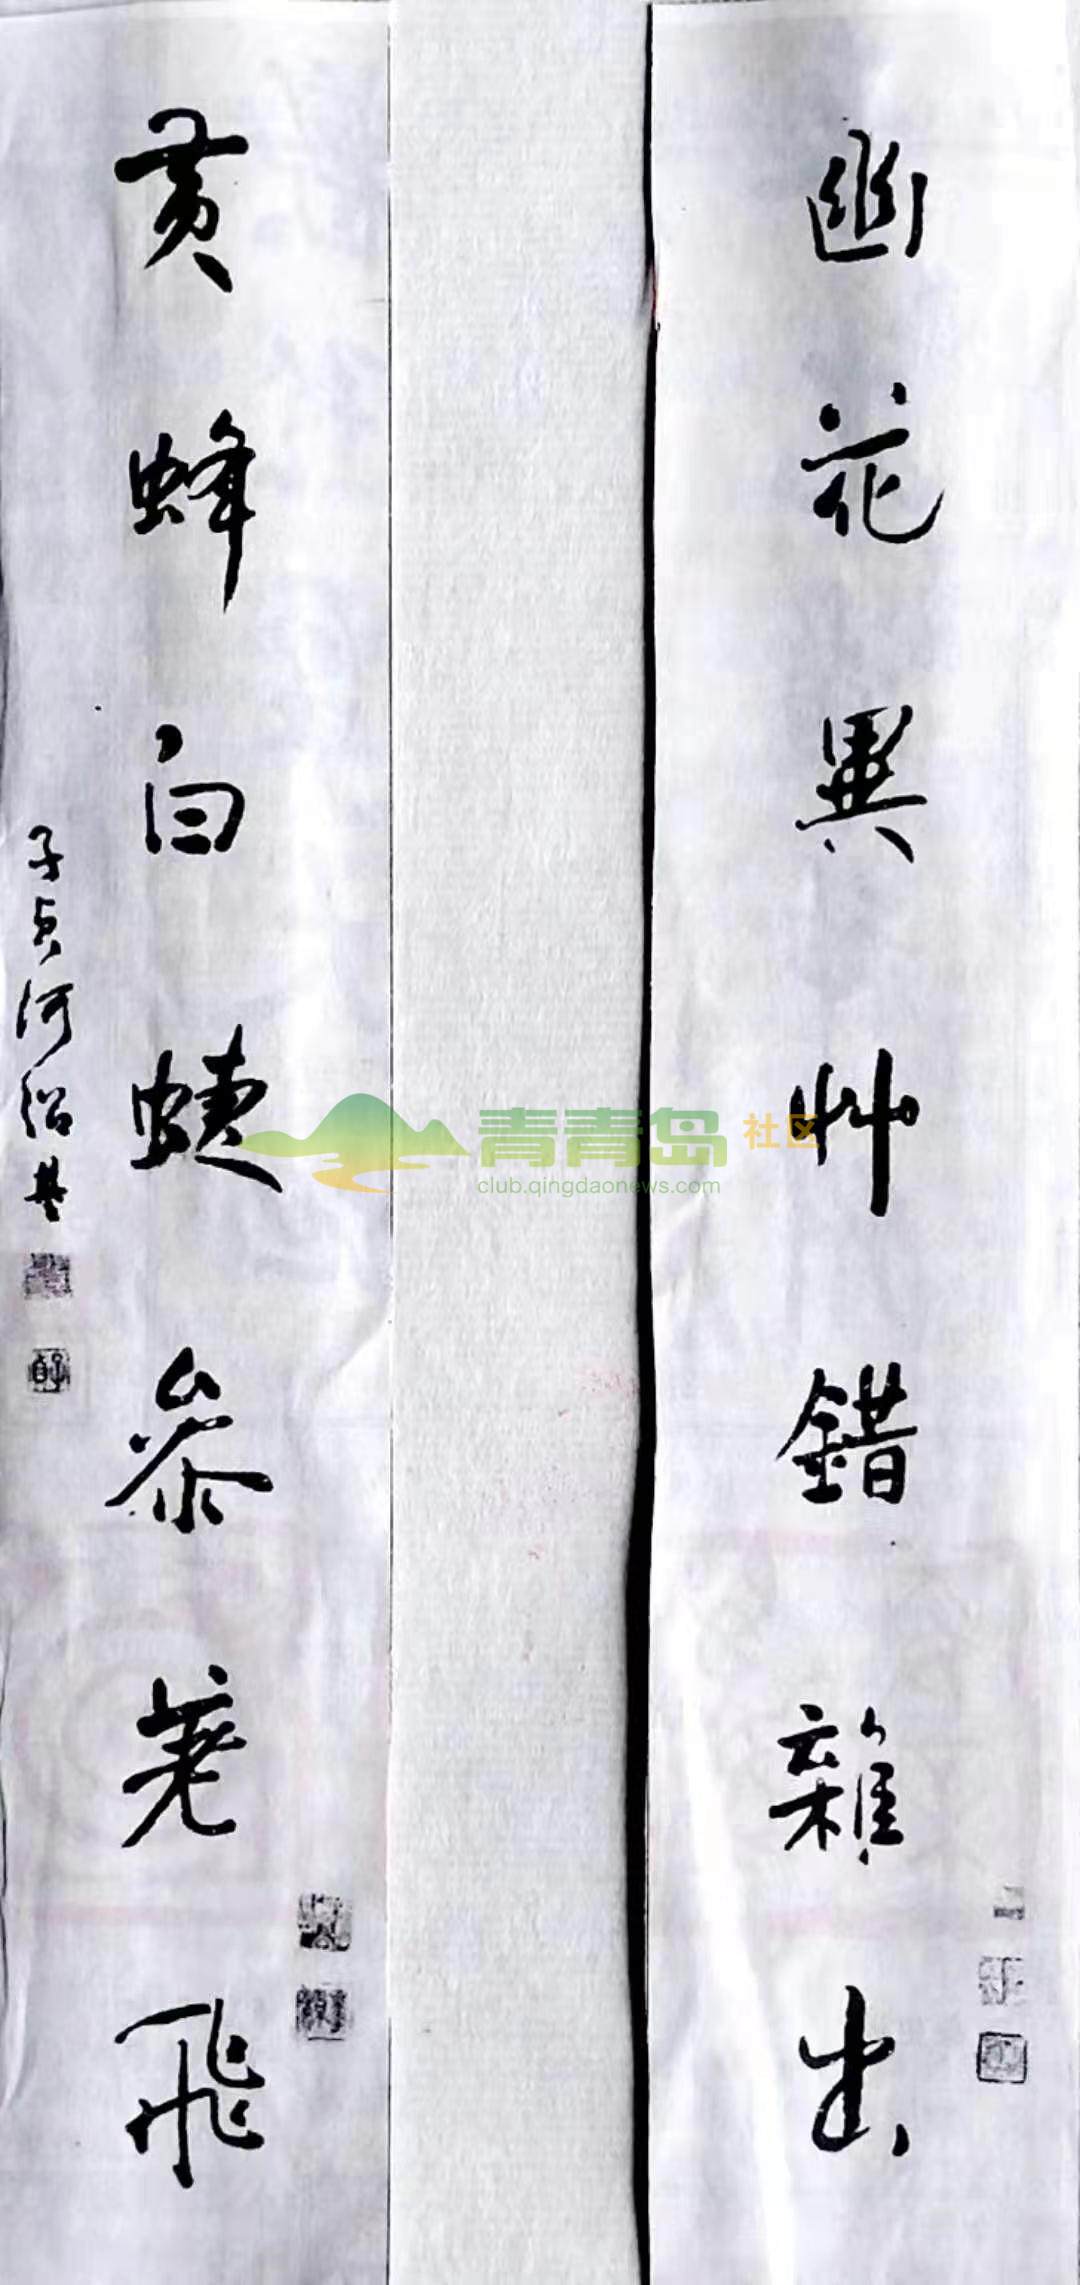 幽花異艸錯雜出
黄蜂白蜨参差飛
子貞何紹基
青青岛社区
club.qingdaonews.com